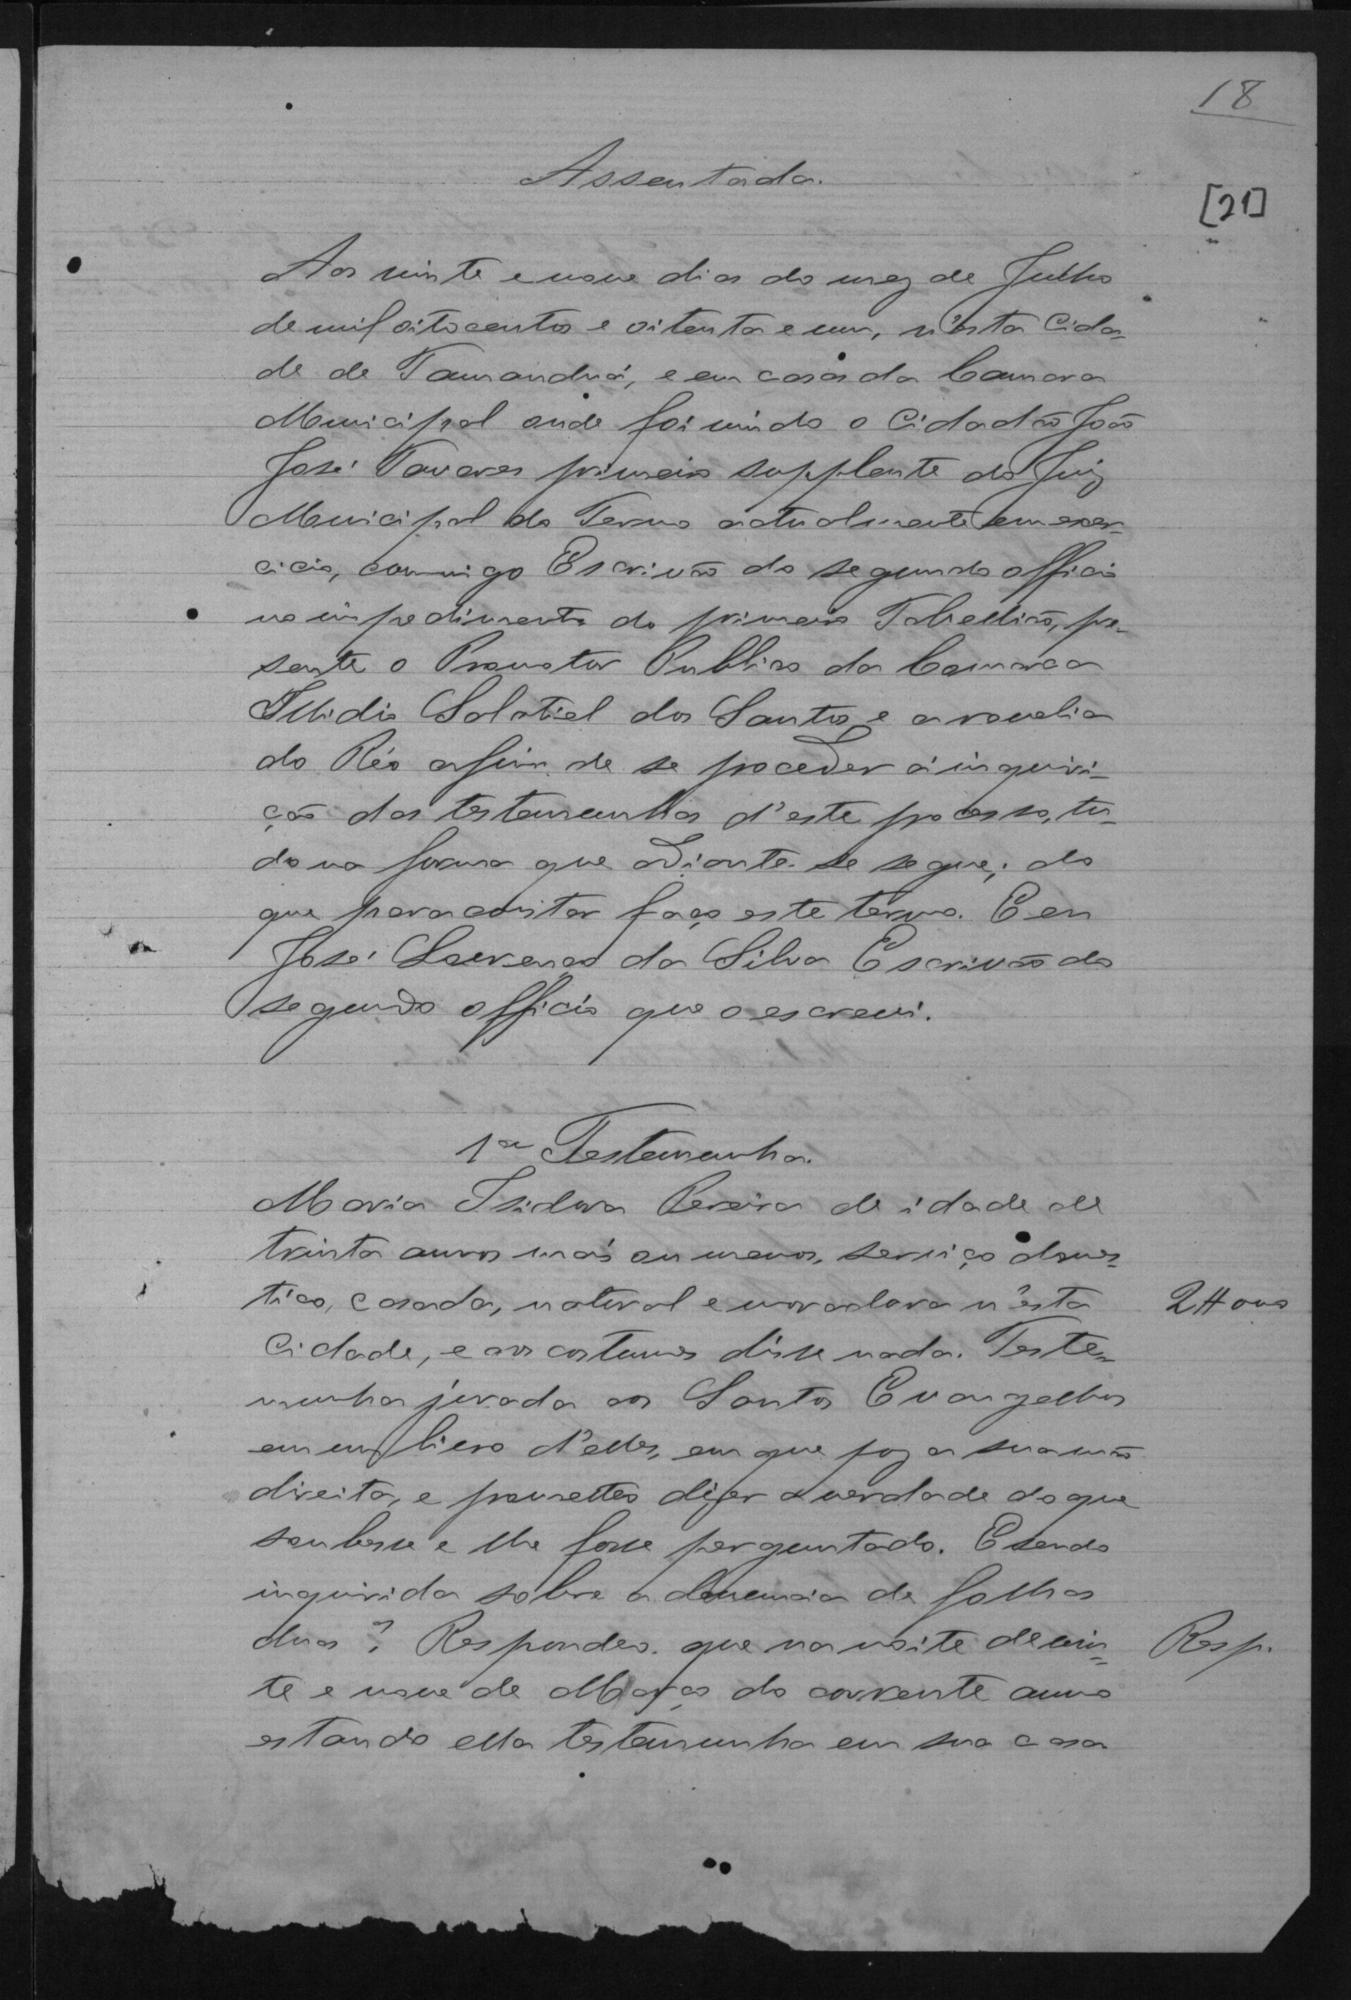 18
[21]
Assentada.
Aos vinte e nove dias do mez de Julho
de mil oitocentos e oitenta e um, n'esta Cida-
de de Tamanduá, e em casas da Camara
Municipal onde foi vindo o Cidadão João
José Tavares primeiro supplente do Juiz
Municipal do Termo actualmente em exer-
cicio, commigo Escrivão do segundo officio
no impedimento do primeiro Tabellião, pre-
sente o Promotor Publico da Comarca
Illidio Salatiel dos Santos, e a revelia
do Réo afim de se proceder á inquiri-
ção das testemunhas d'este processo, tu-
do na forma que adiante se segue; do
que para constar faço este termo. E eu
José Lourenço da Silva Escrivão do
segundo officio que o escrevi.
1ª Testemunha.
Maria Isidora Pereira de idade de
trinta annos mais ou menos, serviço domes-
tico, casada, natural e moradora n'esta
Cidade, e aos costumes disse nada. Teste-
munha jurada aos Santos Evangelhos
em um livro d'elles, em que poz a sua mão
direita, e prometteo dizer a verdade do que
soubesse e lhe fosse perguntado. E sendo
inquirida sobre a denuncia de folhas
duas? Respondeo que na noite de vin-
Resp.
te e nove de Março do corrente anno
estando ella testemunha em sua casa